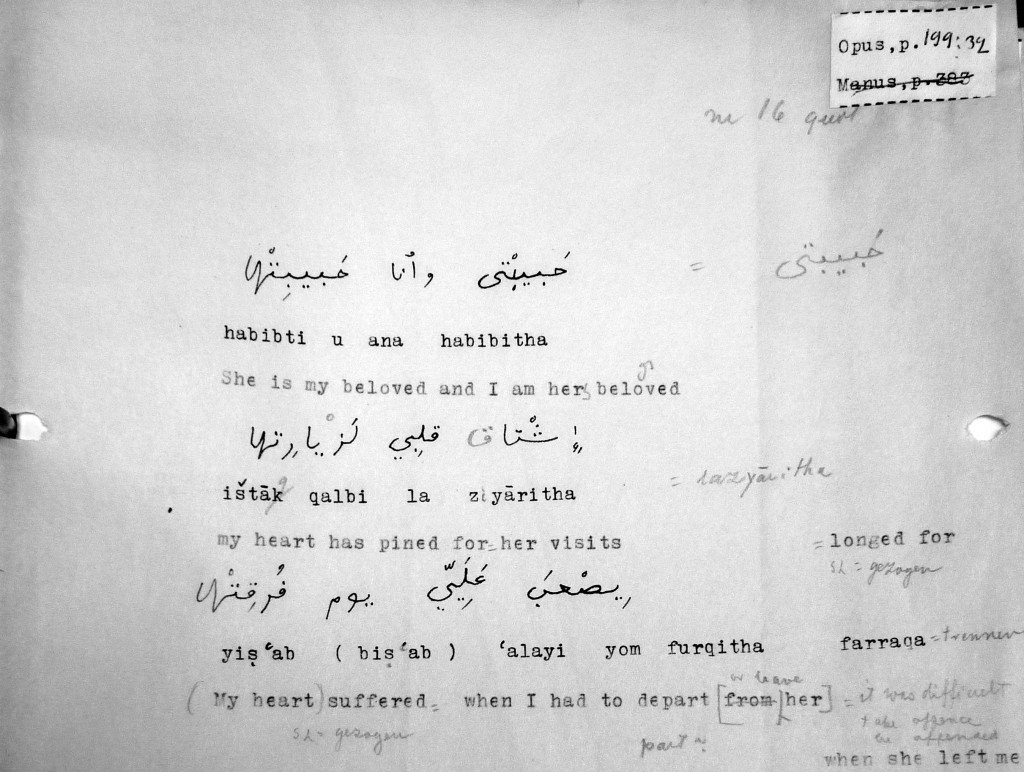 Opus,p.199:32
Manus,p.383
m 16
حَبيبْتِي وأنا حَبيبِتْها = حَبيبتي
habibti u ana habibitha
She is my beloved and I am her beloved
إشْتاق قلبي لَزْيارِتها
ištāk qalbi la ziyāritha = lazyāritha
my heart has pined for= her visits =longed for
= gezogen
يِصْعَب عَلَيِّي يوم فُرقِتْها
yiṣʿab ( biṣʿab ) ʿalayi yom furqitha farraqa =trennen
or leave
(My heart) suffered= when I had to depart [from her] = it was difficult
= gezogen
part
take offence
be offended
when she left me